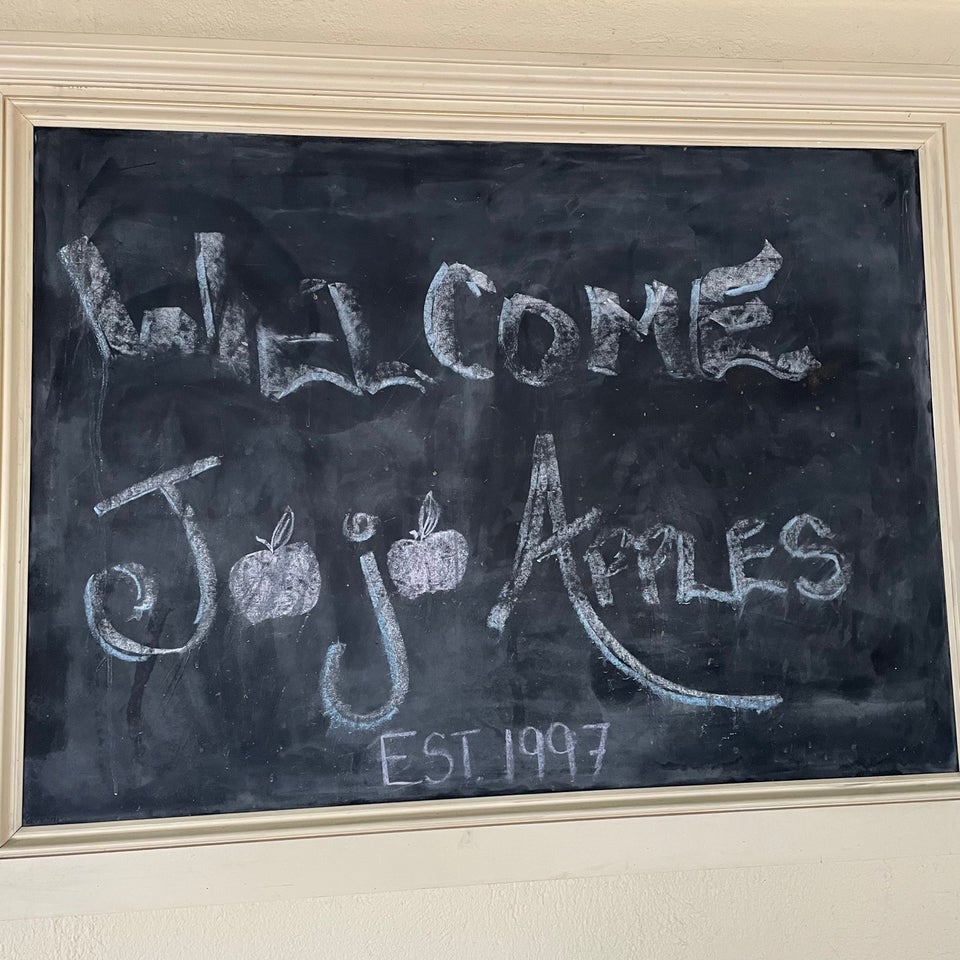 WELCOME
Jojo APPLES
EST. 1997